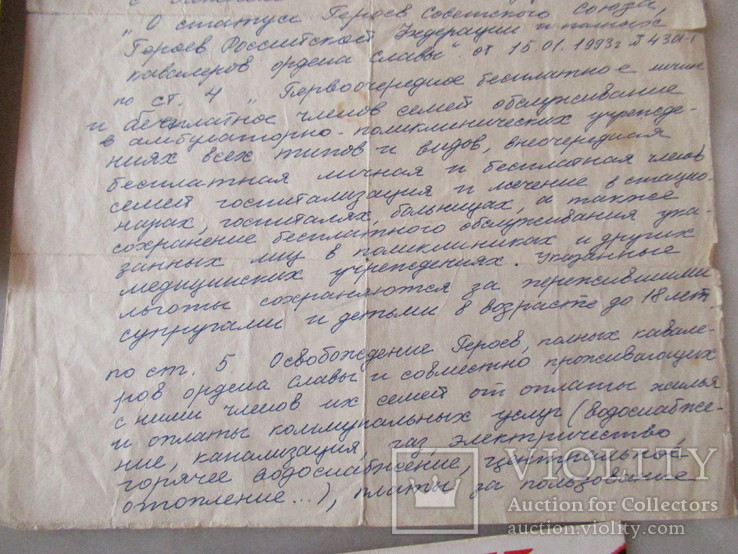 "О статусе Героев Советского Союза,
Героев Российской Федерации и полных
кавалеров ордена Славы" от 15.01.1993г №4301-1
по ст. 4 „Первоочередное бесплатное личн
и бесплатное членов семей обслуживание
в амбулаторно-поликлинических учрежде-
ниях всех типов и видов, внеочередная
бесплатная личная и бесплатная членов
семей госпитализация и лечение в стацио-
нарах, госпиталях, больницах, а также
сохранение бесплатного обслуживания ука-
занных лиц в поликлиниках и других
медицинских учреждениях. Указанные
льготы сохраняются за пережившими
супругами и детьми в возрасте до 18 лет
по ст. 5 Освобождение Героев, полных кавале-
ров ордена Славы и совместно проживающих
с ними членов их семей от оплаты жилья
и оплаты коммунальных услуг (водоснабже-
ние, канализация, газ, электричество,
горячее водоснабжение, центральное
отопление...), платы за пользование
VIOLITY
Auction for Collectors
auction.violity.com